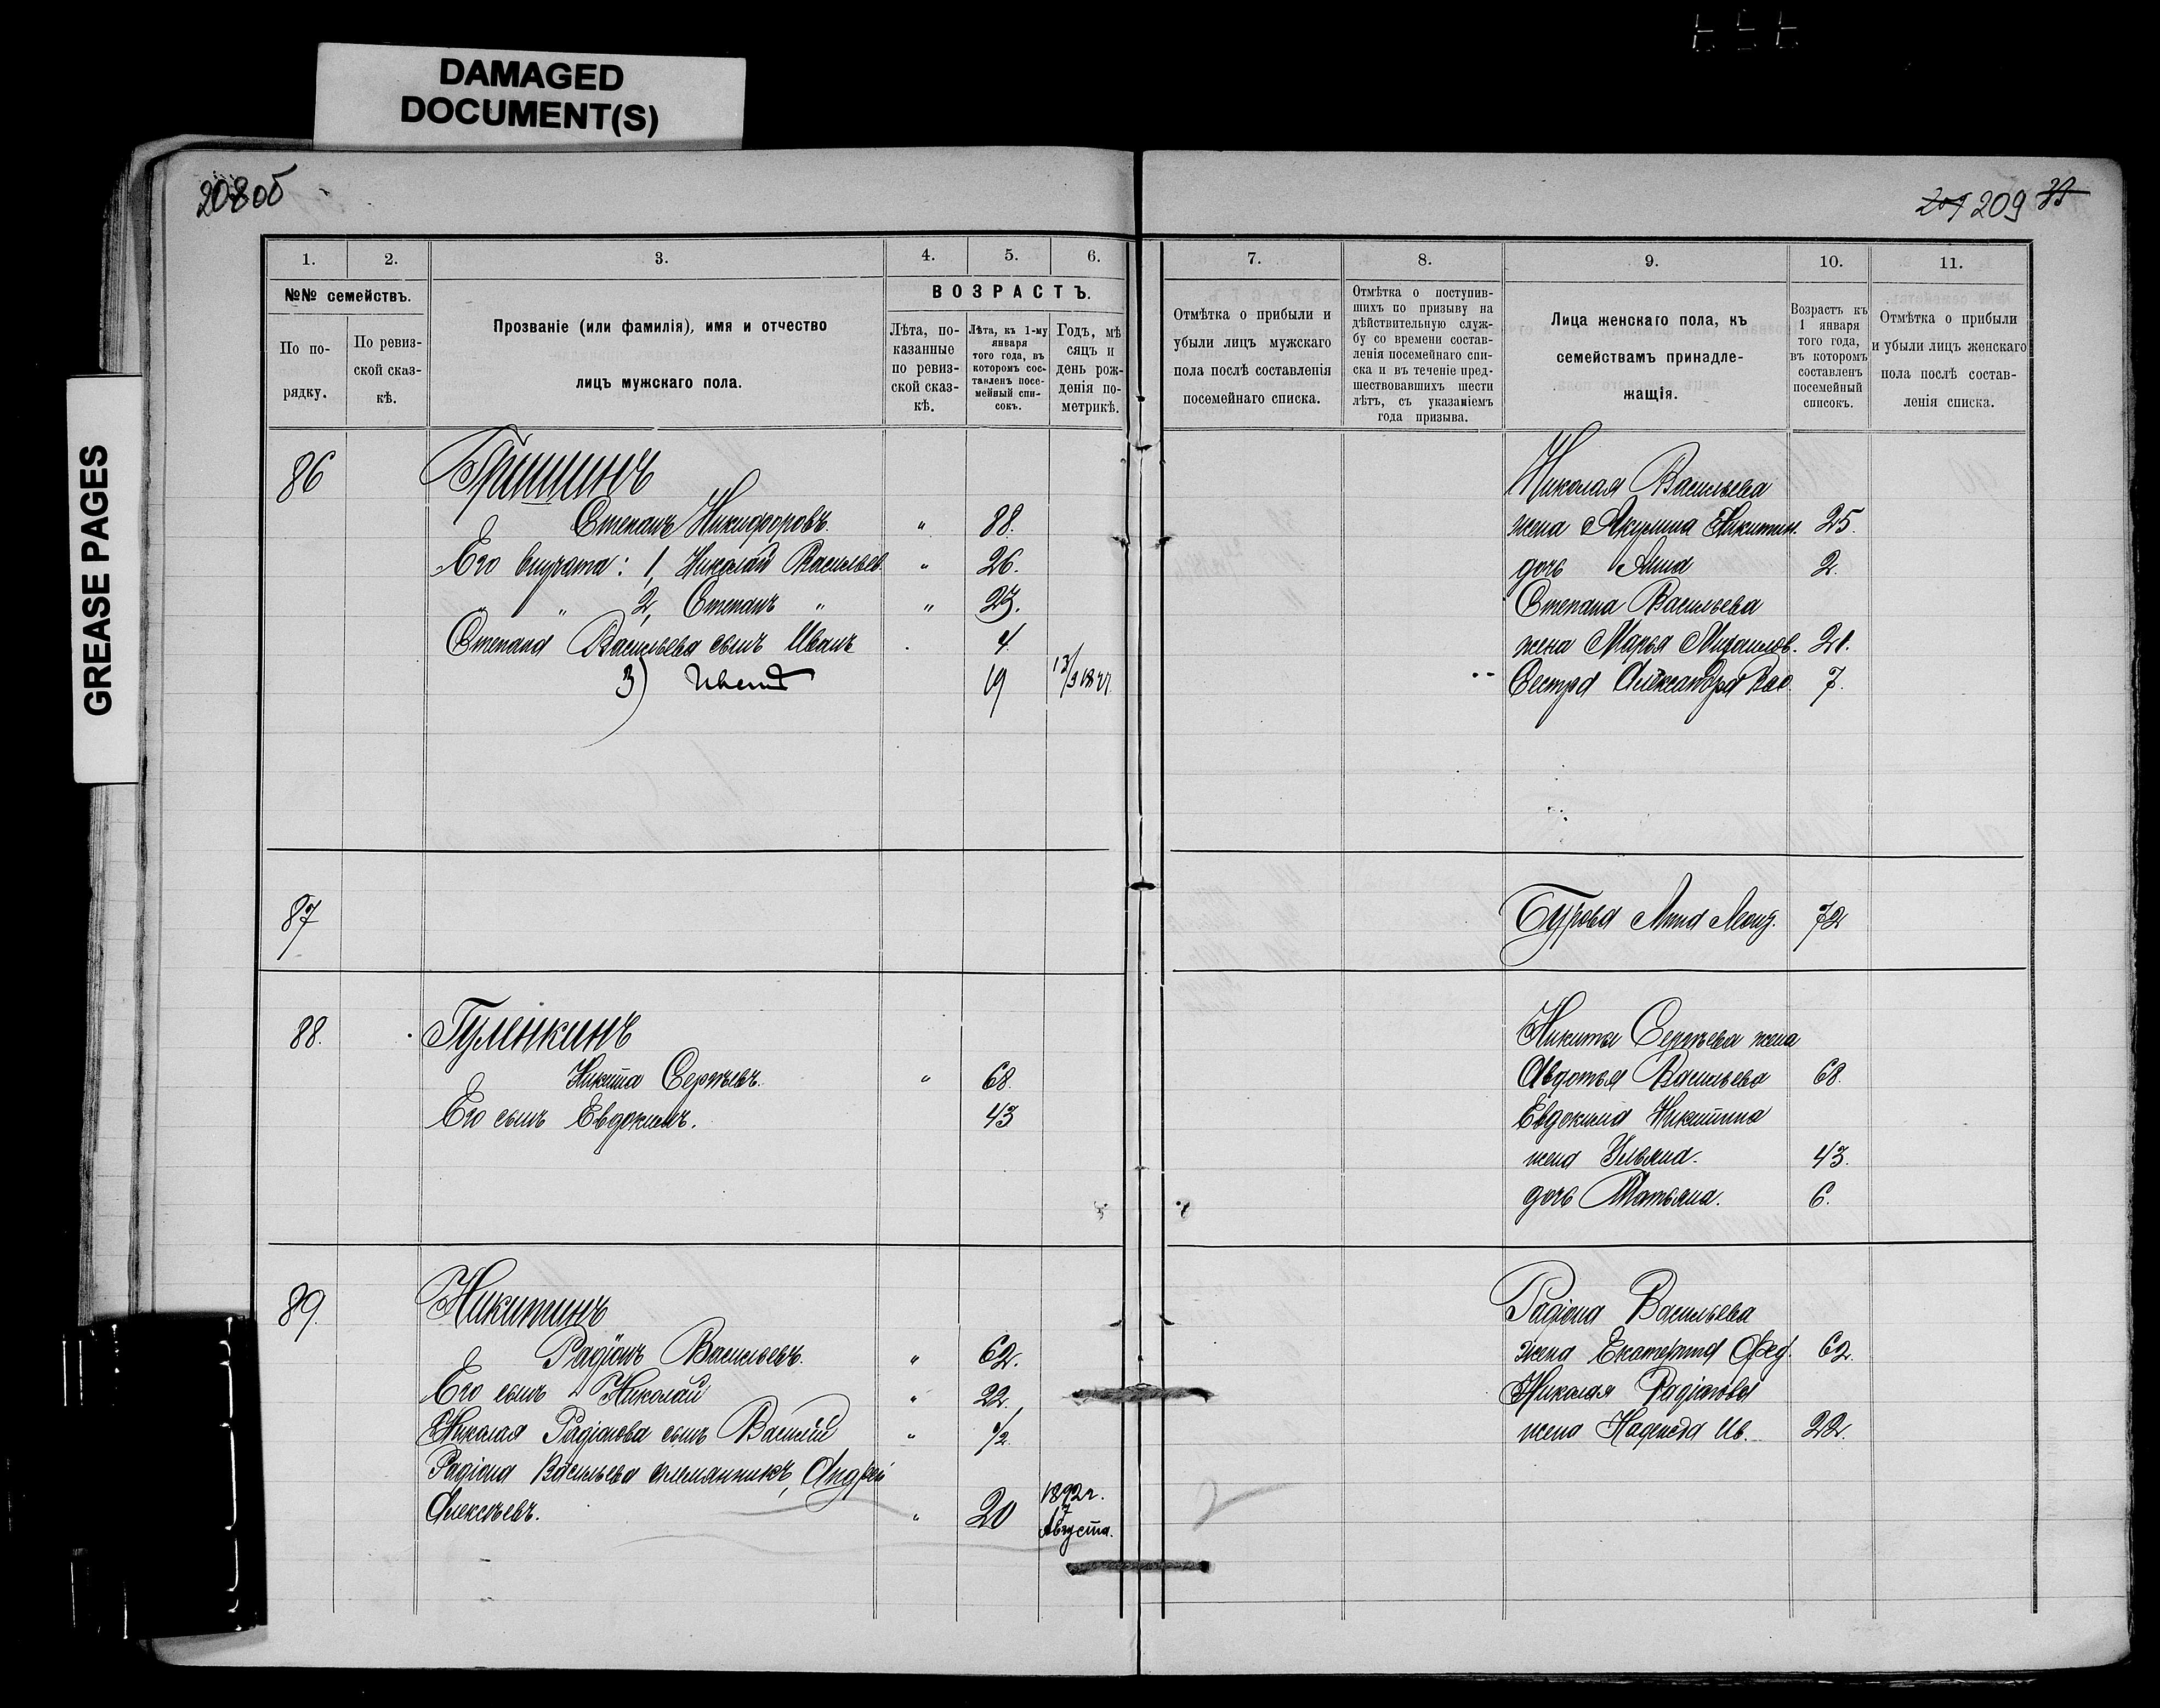 DAMAGED
DOCUMENT(S)
GREASE PAGES
208об
209 209
1. 2. 3. 4. 5. 6.
№№ семействъ.
По по-
рядку.
По ревиз-
ской сказ-
кѣ.
Прозваніе (или фамилія), имя и отчество
лицъ мужскаго пола.
ВОЗРАСТЪ.
Лѣта, по-
казанные
по ревиз-
ской сказ-
кѣ.
Лѣта, къ 1-му
января
того года, въ
которомъ сос-
тавленъ посе-
мейный спи-
сокъ.
Годъ, мѣ
сяцъ и
день рож-
денія по-
метрикѣ.
86 Гришинъ
Степанъ Никифоровъ. " 88.
Его внучата: 1, Николай Васильев. " 26.
" " 2, Степанъ " " 23.
Степана Васильева сынъ Иванъ 4
3) 19
87
88. Гуленкинъ
Никита Сергѣевъ. " 68.
Его сынъ Евдокимъ. 43
89. Никитинъ
Радіонъ Васильевъ. " 62.
Его сынъ Николай " 22.
Николая Радіонова сынъ Василій " 1/2.
Радіона Васильева племянникъ, Андрей
Алексѣевъ. " 20 1892 г.
7
Августа.
7. 8. 9. 10. 11.
Отмѣтка о прибыли и
убыли лицъ мужскаго
пола послѣ составленія
посемейнаго списка.
Отмѣтка о поступив-
шихъ по призыву на
дѣйствительную служ-
бу со времени состав-
ленія посемейнаго спи-
ска и въ теченіе пред-
шествовавшихъ шести
лѣтъ, съ указаніемъ
года призыва.
Лица женскаго пола, къ
семействамъ принадле-
жащія.
Возрастъ къ
1 января
того года,
въ которомъ
составленъ
посемейный
списокъ.
Отмѣтка о прибыли
и убыли лицъ женскаго
пола послѣ состав-
ленія списка.
Николая Васильева
жена Акулина Никитин. 25.
дочь Анна 2.
Степана Васильева
жена Марья Михаилов. 21.
Сестра Александра Вас. 7.
Гурова Анна 72
Никиты Сергѣева жена
Авдотья Васильева 68.
Евдокима Никитина
жена Ульяна. 43.
дочь Татьяна. 6.
Радіона Васильева
жена Екатерина Фед. 62.
Николая Радіонова
жена Надежда Ив. 22.